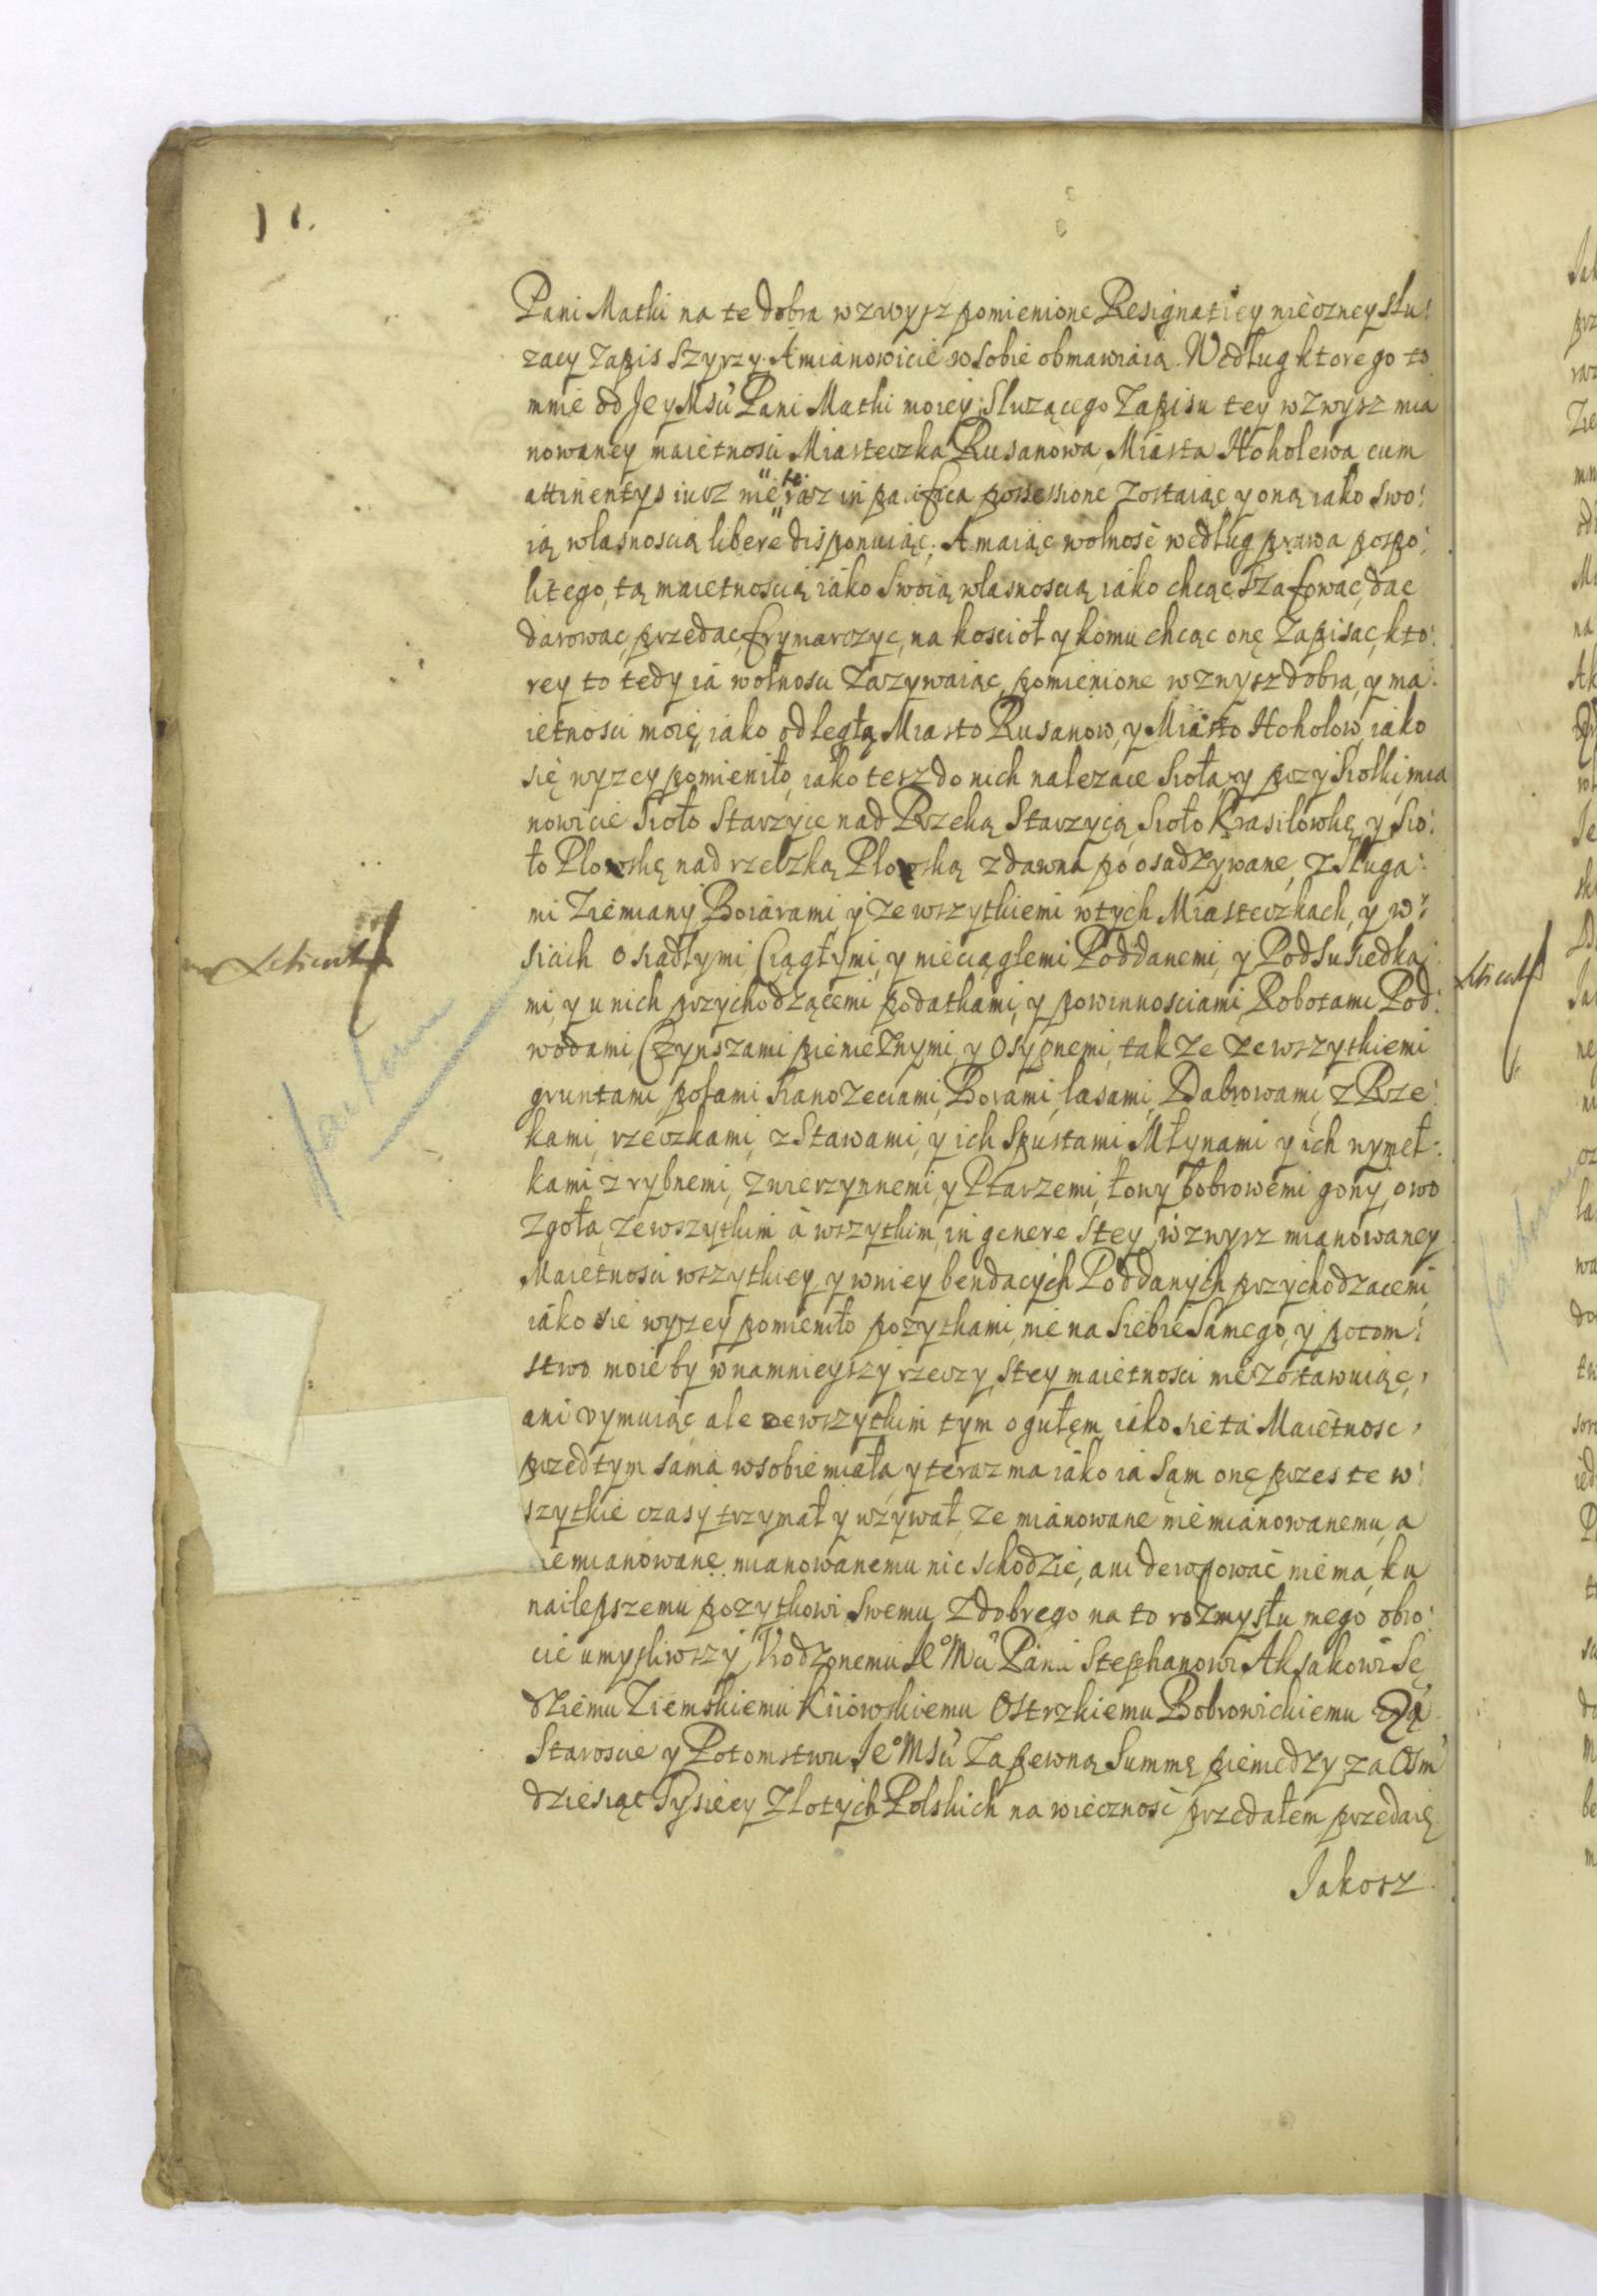 Pani Matki na te dobra wzwysz pomienione Resignatiey wieczney słu:
zacy zapis szyrzy. A mianowicie w sobie obmawiaią. Według ktorego to
mnie od Jey Msci Pani Matki moiey Sluzącego Zapisu tey wzwysz mia
nowaney maietnosci Miasteczka Rusanowa, Miasta Hoholewa cum
attinentys iusz nie teraz in pacifica possessione zostaiąc y oną iako swo:
ią własnoscią libere disponuiąc. A maiąc wolnosc według prawa pospo:
litego, tą maietnoscią iako swoią własnoscią iako chcąc szafowac, dac
darowac, przedac, frymarczyc, na kościoł y komu chcąc onę zapisac, kto:
rey to tedy ia wolnosci zazywaiąc, pomienione wzwysz dobra, y ma:
ietnosci moię iako odległą Miasto Rusanow, y Miasto Hoholow, iako
się wyzey pomieniło, iako tesz do nich nalezace sioła, y przysiolki, mia
nowicie Sioło Starzyce nad Rzeką Starzycą, Sioło Krasilowkę, y Sio:
ło Plowskę nad rzeczką Plowską zdawna poosadzywane, z Sługa:
mi Ziemiany Boiarami, y ze wszytkiemi w tych Miasteczkach, y w
siach osiadłymi Ciągłymi, y nieciąglemi Poddanemi, y Podsusiedka:
mi, y u nich przychodzącemi podatkami, y powinnosciami, Robotami Pod:
wodami, Czynszami pienieznymi, y Osypnemi, takze ze wszytkiemi
gruntami, polami, sianozeciami, Borami, lasami, Dabrowami, z Rze:
kami, rzeczkami, z Stawami, y ich Spustami Młynami y ich wymeł:
kami z rybnemi, zwierzynnemi, y Ptarzemi, łowy bobrowemi gony, owo
zgoła, zewszytkim a wszytkim, in genere s tey wzwysz mianowaney
Maietnosci wszytkiey, y w niey bendacych Poddanych przychodzacemi
iako sie wyzey pomieniło pozytkami, nie na Siebie Samego, y potom:
stwo moie by w namnieyszy rzeczy, s tey maietnosci nie zostawuiąc,
ani vymuiąc ale ze wszytkim tym ogułęm, iako sie ta Maietnosc,
przed tym sama w sobie miała, y teraz ma iako ia Sąm onę przes te w:
szytkie czasy trzymał y uzywał, ze mianowane niemianowanemu, a
niemianowane mianowanemu nic schodzic, ani derogować niema, ku
nailepszemu pozytkowi swemu z dobrego na to rozmysłu mego obro:
cie umysliwszy, Vrodzonemu Je⁰ Mci Panu Stephanowi Aksakowi Sę
dziemu Ziemskiemu Kiiowskiemu Ostrzkiemu Bobrowickiemu
Staroscie y Potomstwu Je⁰ Msci Za pewną Summę pieniedzy, za Osm
dziesiąt Tysiecy Złotych Polskich na wiecznosc przedałem przedaię
Jakosz